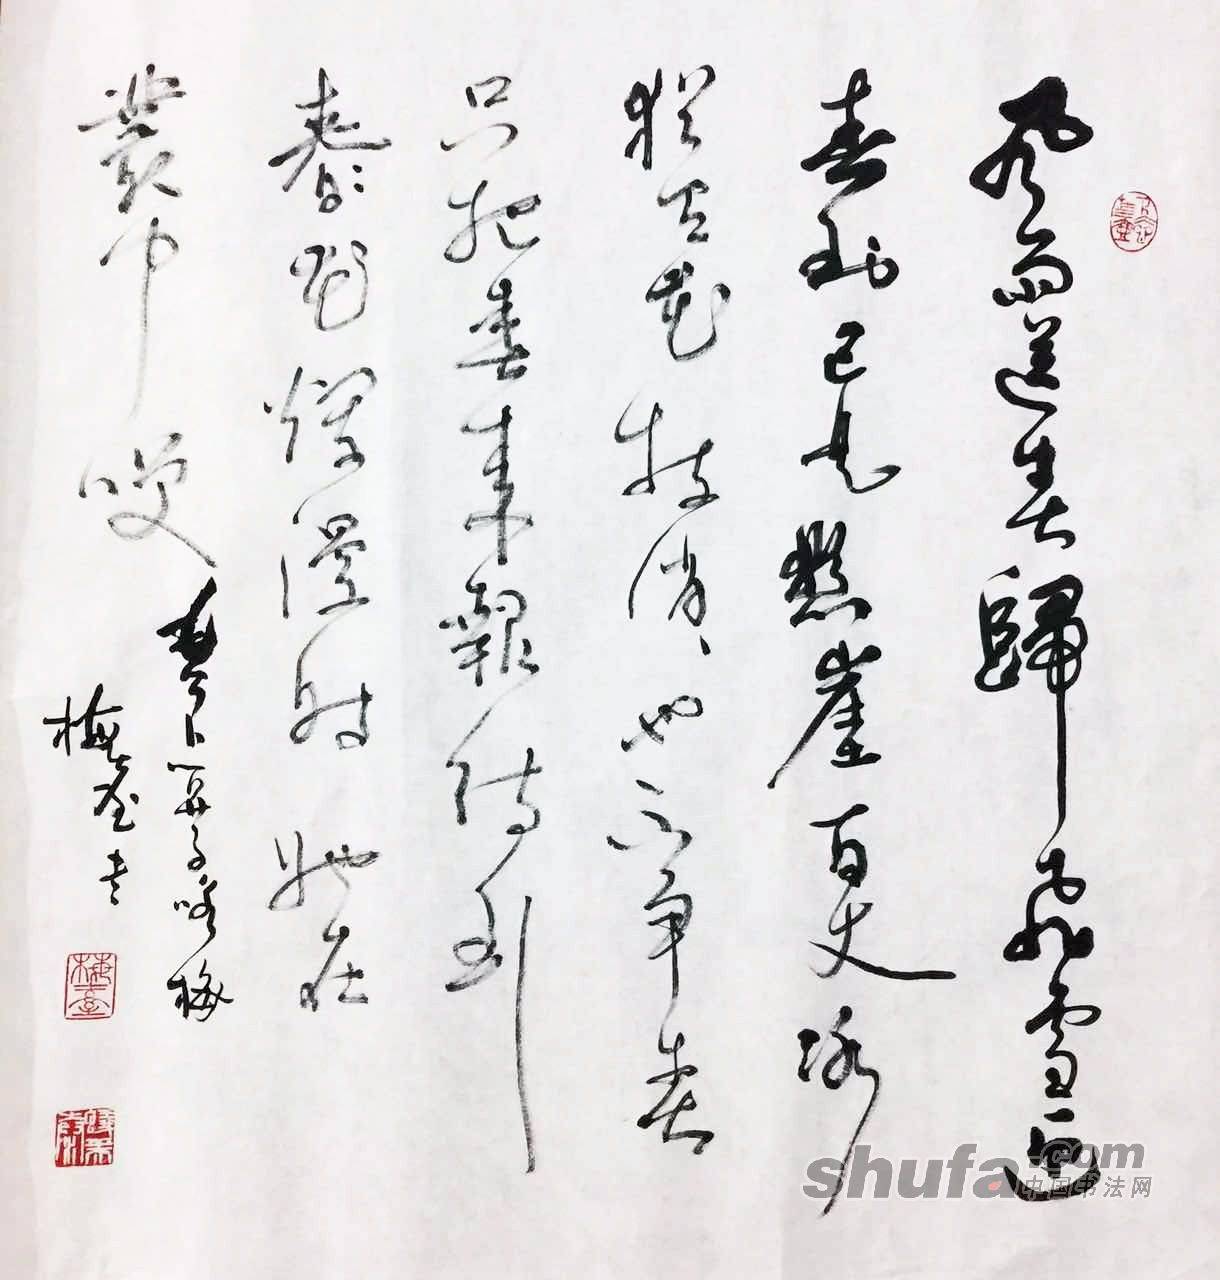 風雨送春歸飛雪迎
春到已是懸崖百丈冰
犹有花枝俏、也不争春
只把春来報待到
爛漫時她在
叢中笑
卜算子咏梅
梅
shufa.com
中国书法网